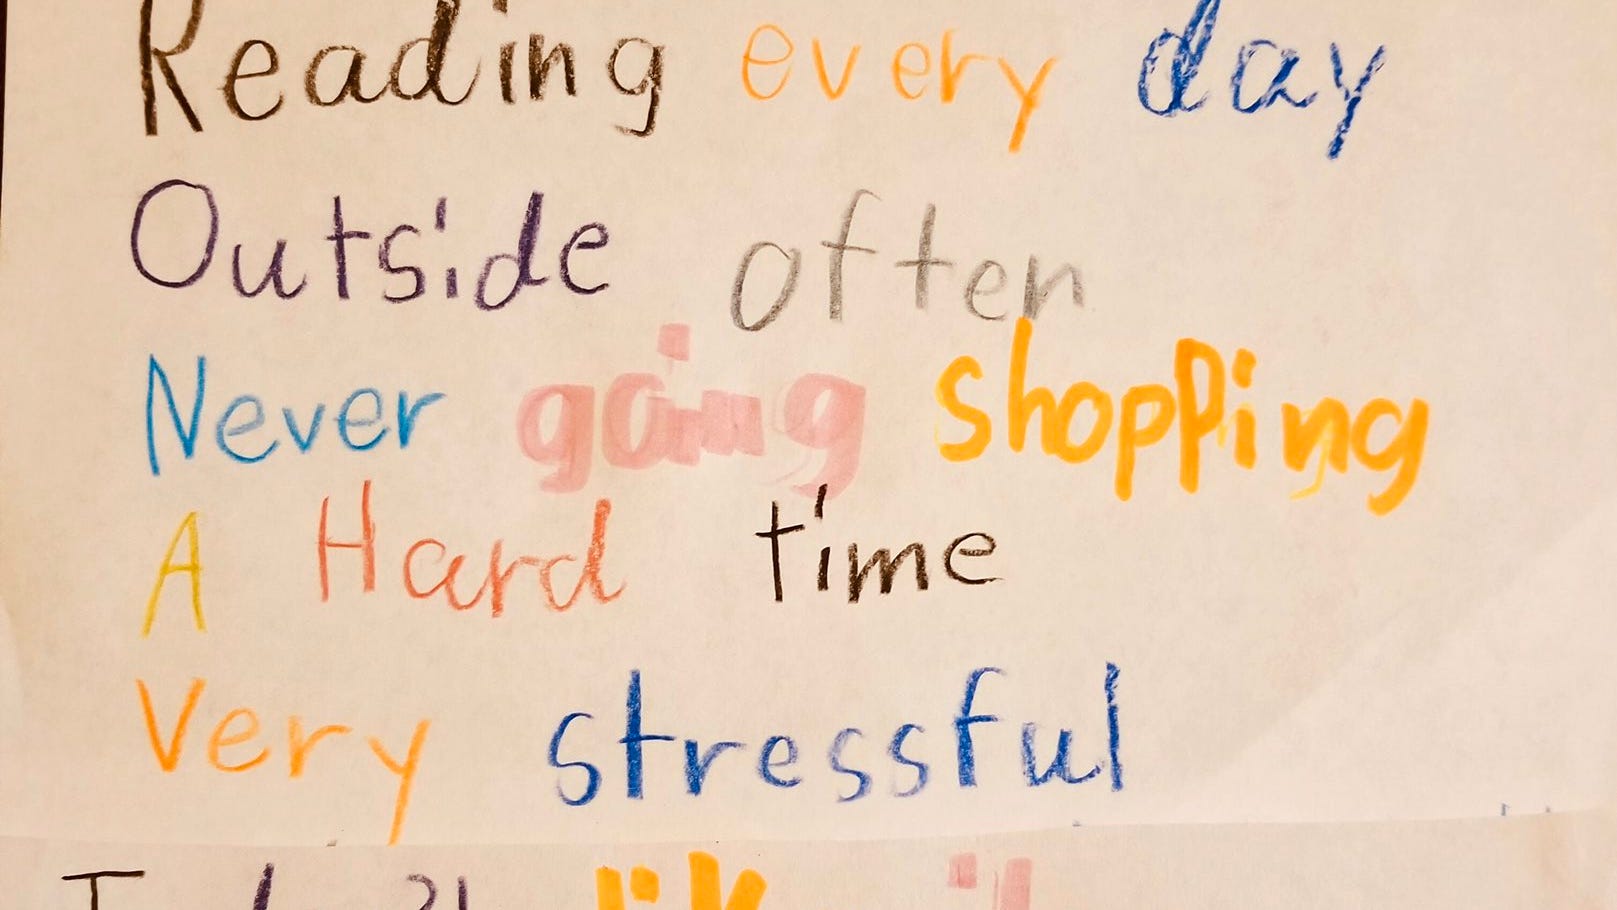 Reading every day
Outside often
Never going shopping
A Hard time
Very stressful
I don't like it